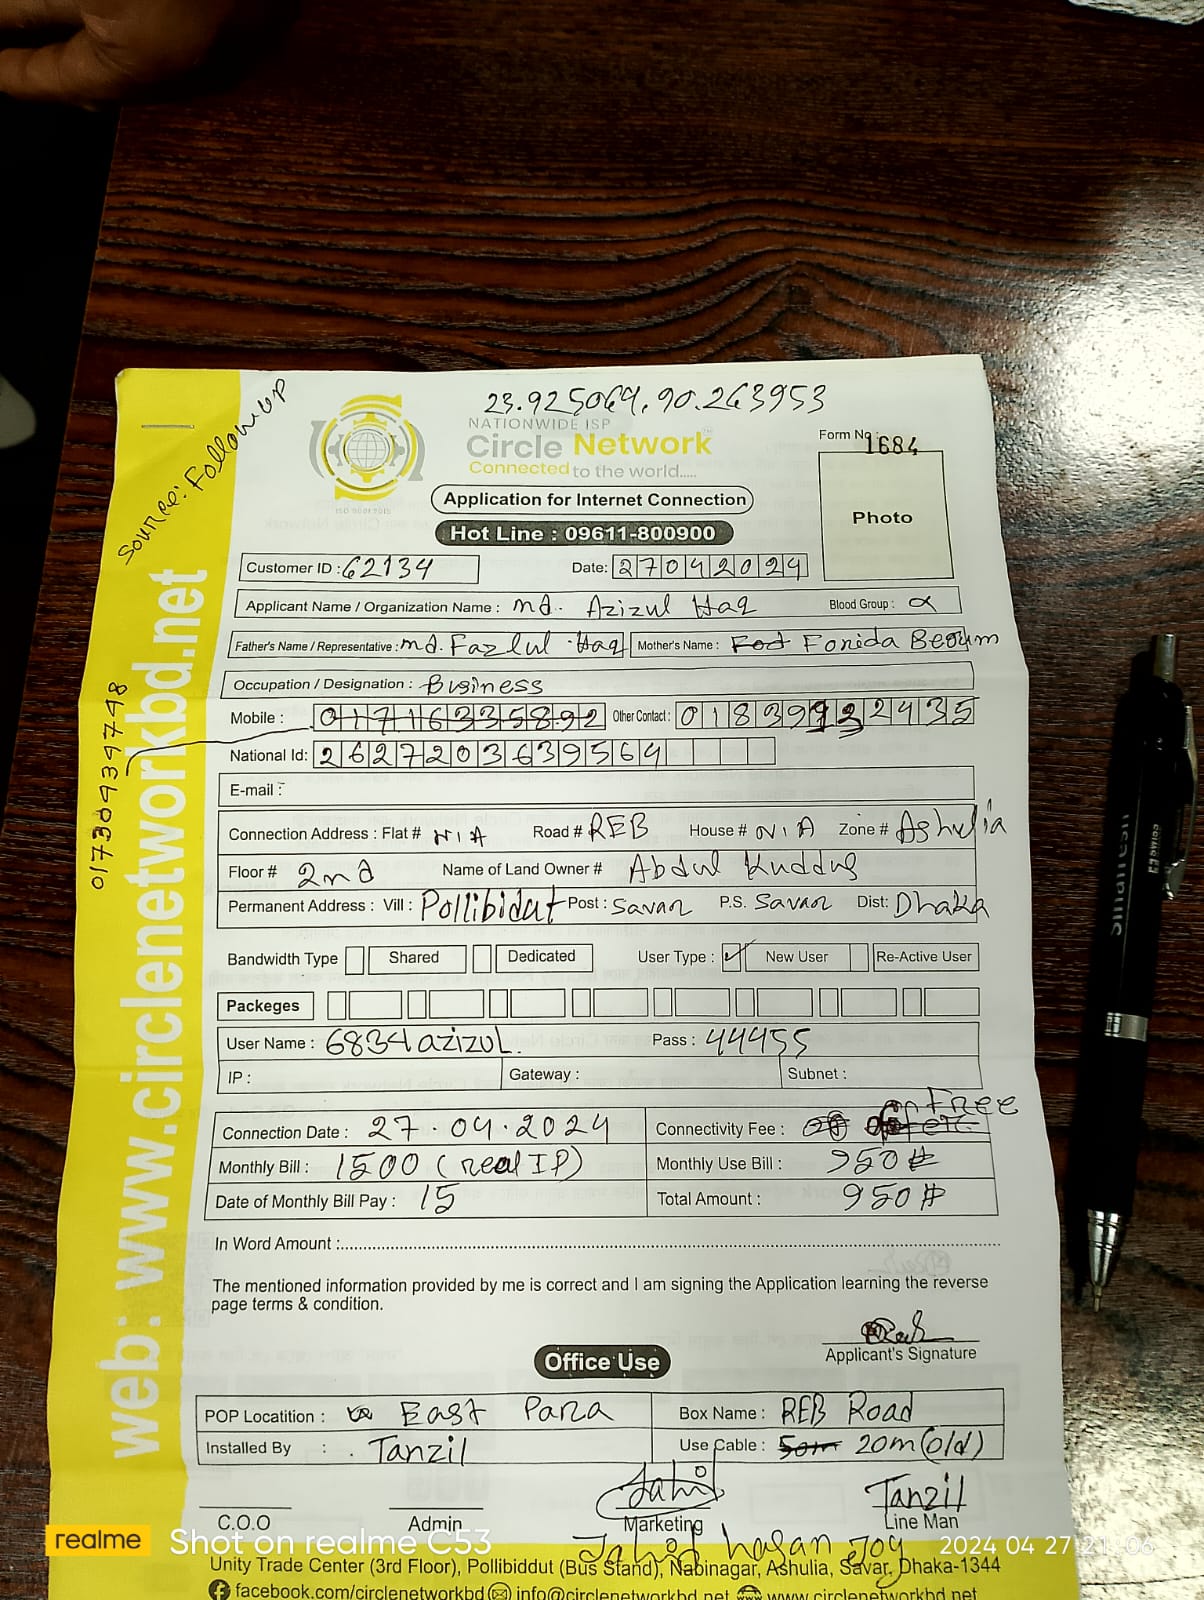 23.925064, 90.263953
Source: Follow up
NATIONWIDE ISP
Circle Network
Connected to the world.....
Form No : 1684
Application for Internet Connection
Photo
Hot Line : 09611-800900
Customer ID : 62134 Date: 27042024
Applicant Name / Organization Name : Md. Azizul Haq Blood Group :
Father's Name / Representative : Md. Fazlul Haq Mother's Name : Forida Begum
Occupation / Designation : Business
Mobile : 017116335892 Other Contact : 0183992435
01730939748
National Id: 2627203639564
E-mail :
Connection Address : Flat # N/A Road # REB House # N/A Zone # Ashulia
Floor # 2nd Name of Land Owner # Abdul Kuddus
Permanent Address : Vill : Pollibidut Post : Savar P.S. Savar Dist: Dhaka
Bandwidth Type Shared Dedicated User Type : ✓ New User Re-Active User
Packeges
User Name : 6834azizul. Pass : 44455
IP : Gateway : Subnet :
Connection Date : 27.04.2024 Connectivity Fee : Free
Monthly Bill : 1500 (real IP) Monthly Use Bill : 950
Date of Monthly Bill Pay : 15 Total Amount : 950
In Word Amount :
The mentioned information provided by me is correct and I am signing the Application learning the reverse
page terms & condition.
Applicant's Signature
Office Use
POP Locatition : East Para Box Name : REB Road
Installed By : Tanzil Use Cable : 50m 20m (old)
Jahid Tanzil
C.O.O Admin Marketing Line Man
Jahid hasan Joy
web: www.circlenetworkbd.net
Unity Trade Center (3rd Floor), Pollibiddut (Bus Stand), Nabinagar, Ashulia, Savar, Dhaka-1344
facebook.com/circlenetworkbd info@circlenetworkbd.net www.circlenetworkbd.net
realme Shot on realme C53 2024 04 27 21:06